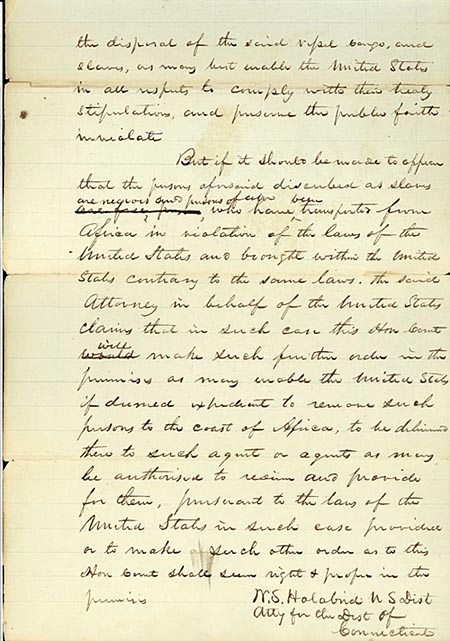 the disposal of the said vessel cargo, and
slaves, as may best enable the United States
in all respects to comply with their treaty
stipulations, and preserve the public faith
inviolate
But if it should be made to appear
that the persons aforesaid described as slaves
are negroes and persons of color been
who have transported from
Africa, in violation of the laws of the
United States and brought within the United
States contrary to the same laws. the said
Attorney in behalf of the United States
claims that in such case this Hon Court
will
would make such further order in the
premises as may enable the United States
if deemed expedient to remove such
persons to the coast of Africa, to be delivered
there to such agent or agents as may
be authorised to receive and provide
for them, pursuant to the laws of the
United States in such case provided
or to make such other order as to this
Hon Court shall seem right & proper in the
premises W. S. Holabird U S Dist
Atty for the Dist of
Connecticut